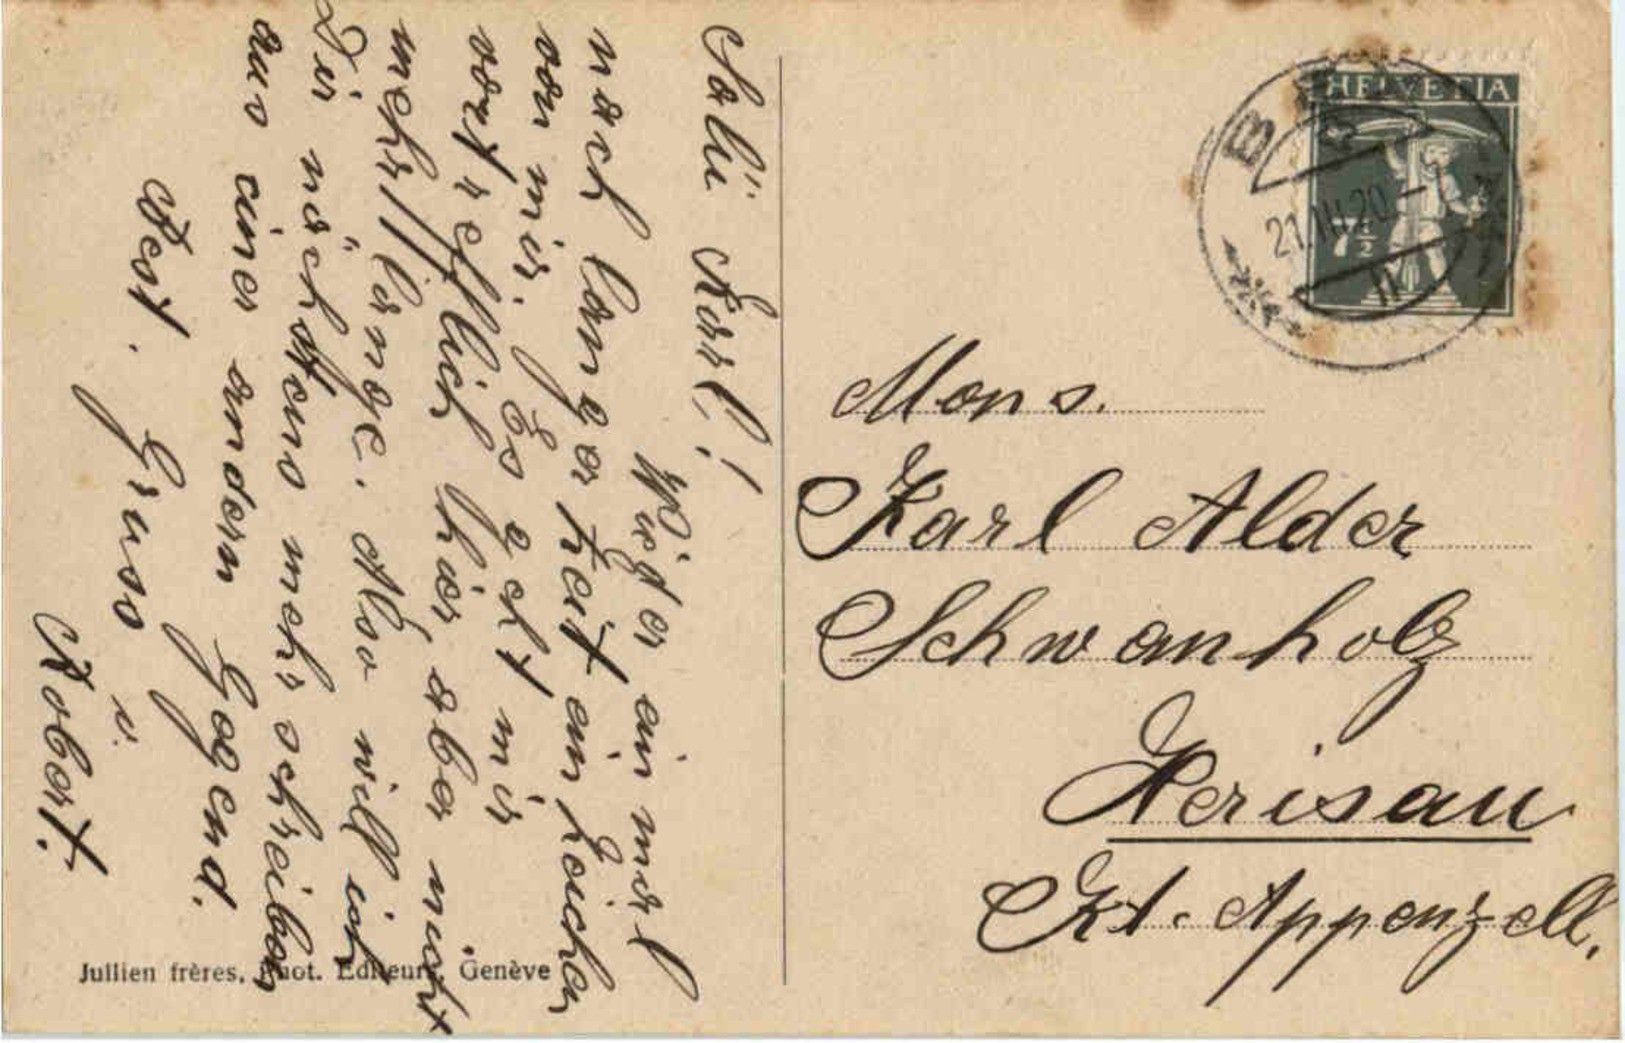 Salü Karl!
Wieder ein mal
nach langer Zeit ein Zeichen
von mir. Es geht mir
vortrefflich hier, aber nicht
mehr lange. Also will ich
Dir nächstens mehr schreiben
aus einer andern Gegend.
Best. Gruss v.
Robert.
Jullien frères, Phot. Editeurs, Genève
HELVETIA
7½
21.III.20
Mons.
Karl Alder
Schwanholz
Herisau
Kt. Appenzell.